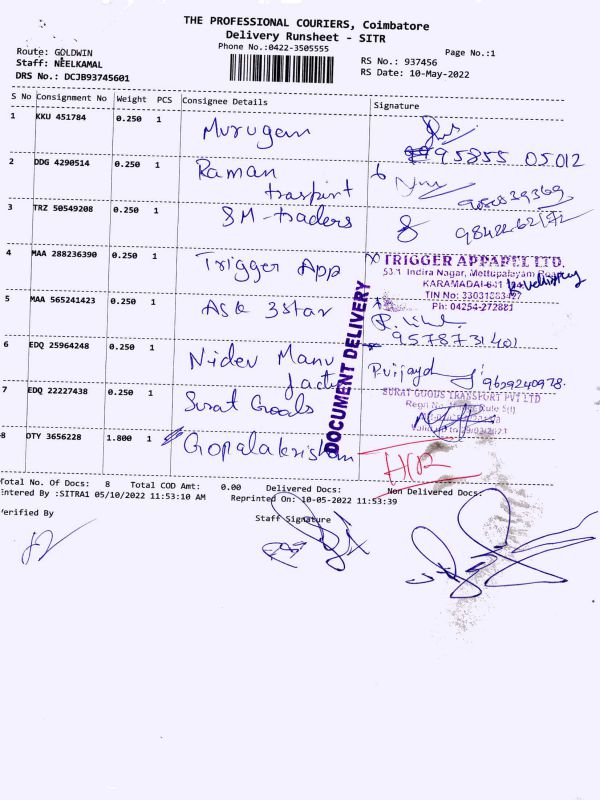 THE PROFESSIONAL COURIERS, Coimbatore
Delivery Runsheet - SITR
Phone No.:0422-3505555
Page No.:1
Route: GOLDWIN
Staff: NEELKAMAL
DRS No.: DCJB93745601
RS No.: 937456
RS Date: 10-May-2022
S No Consignment No Weight PCS Consignee Details Signature
1 KKU 451784 0.250 1 Murugan
95855 05012
2 DDG 4290514 0.250 1 Raman
trasport
3 TRZ 50549208 0.250 1 SM-traders
4 MAA 288236390 0.250 1 Trigger App
TRIGGER APPAREL LTD.
53/1 Indira Nagar, Mettupalayam Road
KARAMADAI-641
TIN No: 33031883427
Ph: 04254-272881
5 MAA 565241423 0.250 1 Ask 3star
9578731401
DOCUMENT DELIVERY
6 EDQ 25964248 0.250 1 Nidev Manu
factu
9629240978.
7 EDQ 22227438 0.250 1 Surat Goods
SURAT GOODS TRANSPORT PVT LTD
8 DTY 3656228 1.800 1 Gopalakrishnan
Total No. Of Docs: 8 Total COD Amt: 0.00 Delivered Docs: Non Delivered Docs:
Entered By :SITRA1 05/10/2022 11:53:10 AM Reprinted On: 10-05-2022 11:53:39
Verified By
Staff Signature